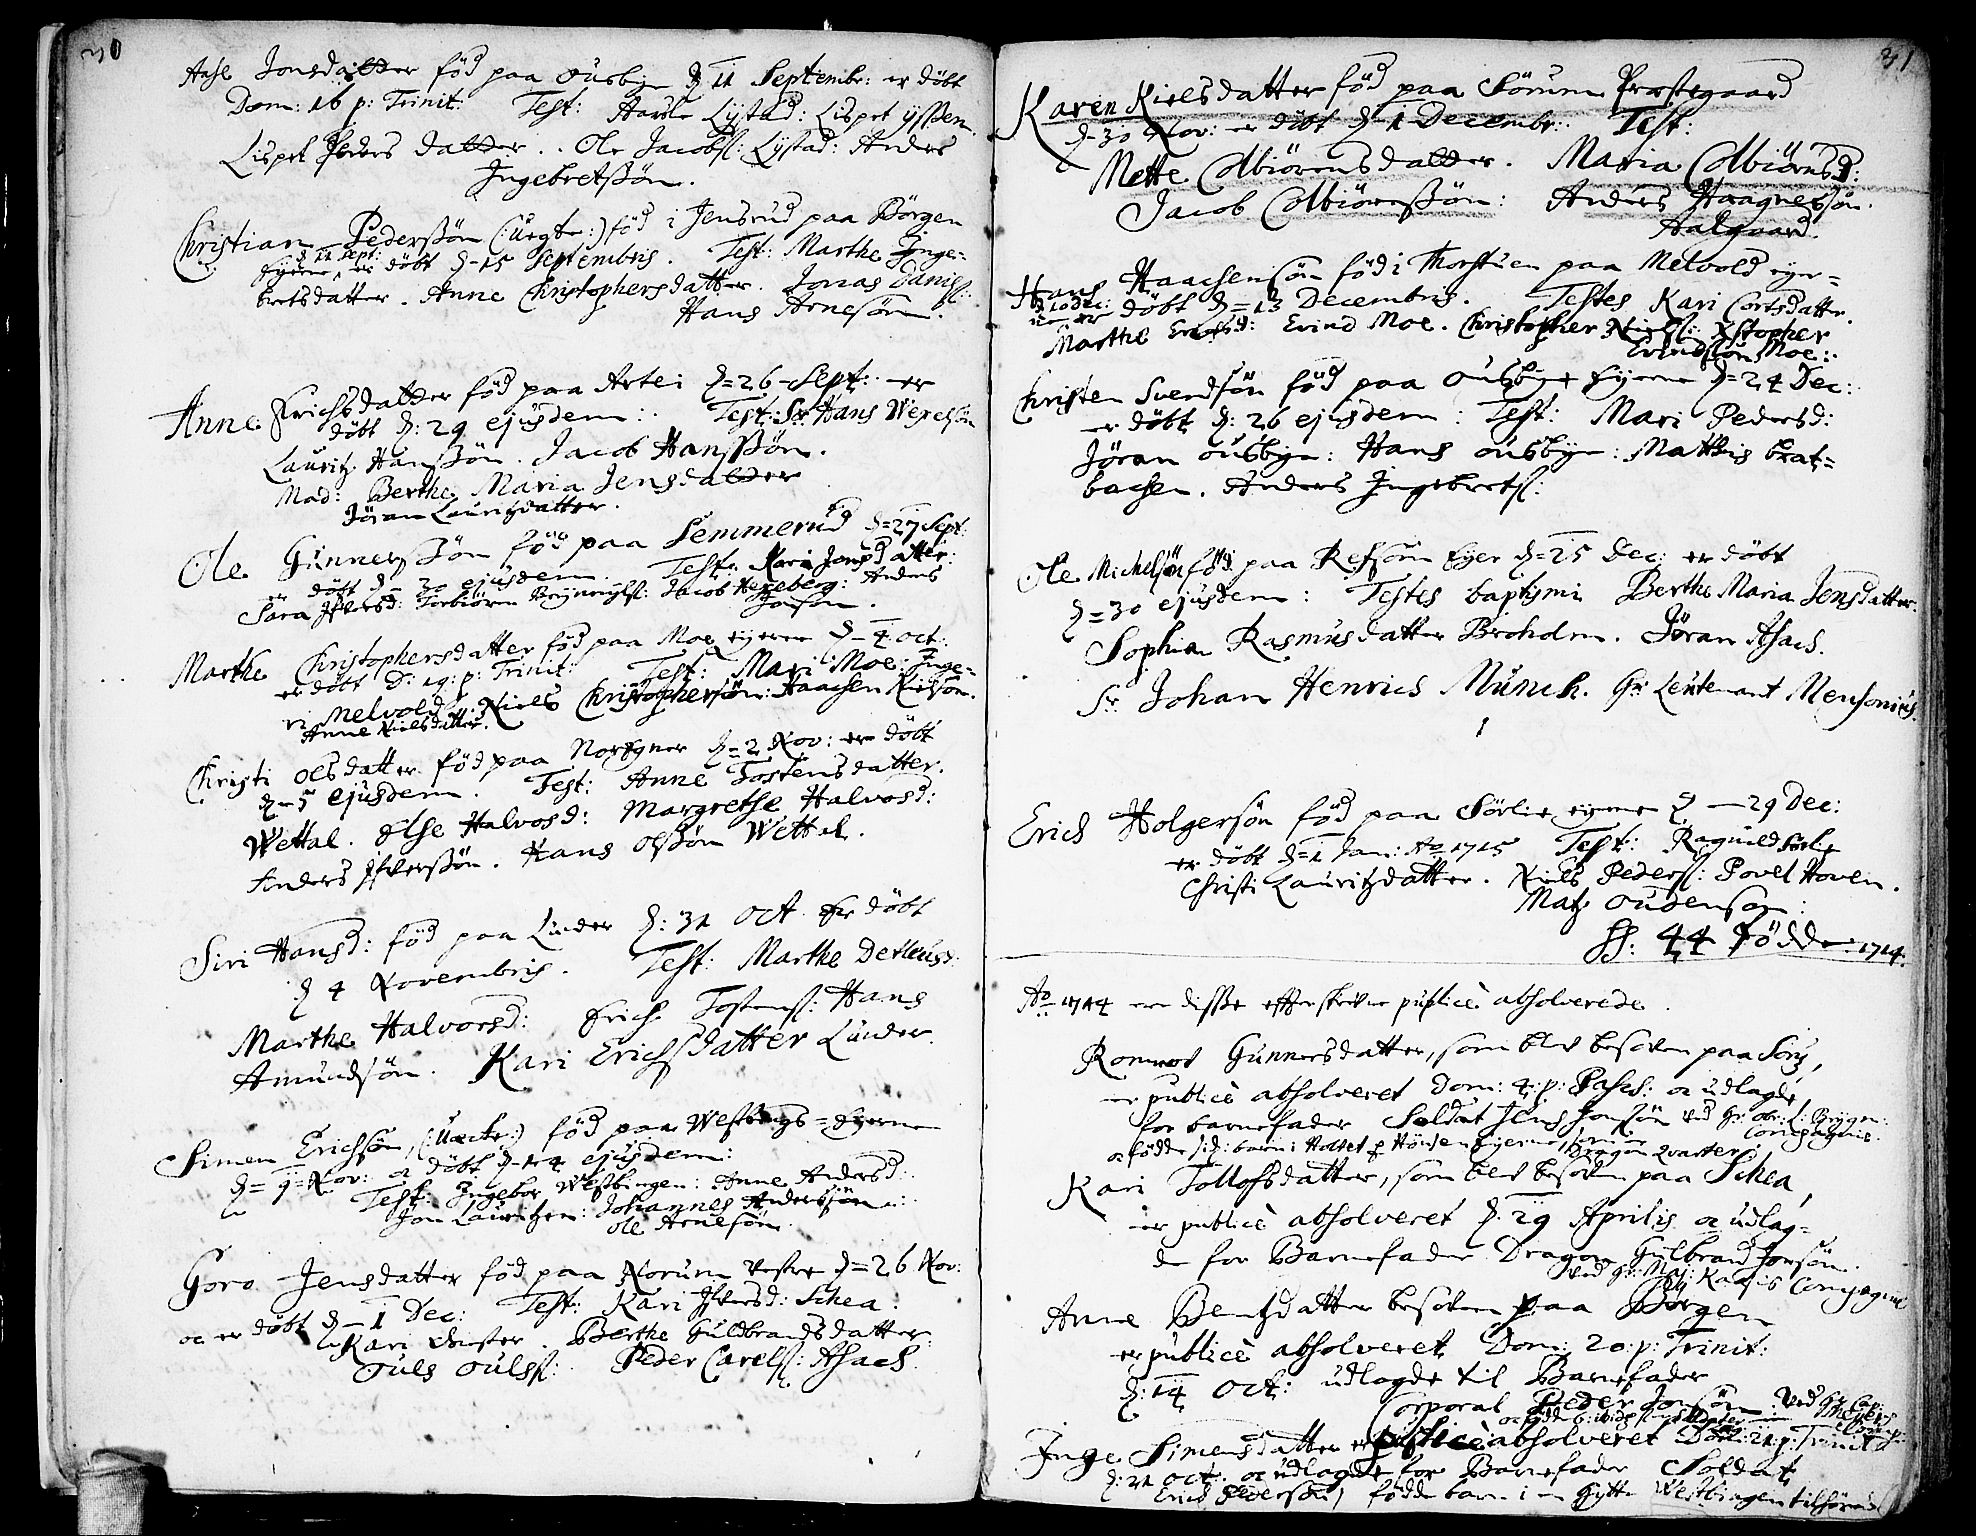 30
Aase Jonsdatter föd paa Ousby d. 11 Septembr: er döbt
Dom: 16 p: Trinit: Test: Lystad: Lispet
Lispet Peders datter. Ole Jacobs: Lystad: Anders
Ingebretssön.
Christian Pederssön (:uegte:) föd i Jensrud paa Börgen
d 11 Sept:
Eyerne, er döbt d-15 Septembris. Test: Marthe Inge-
bretsdatter. Anne Christophersdatter. Jonas Daniels:
Hans Arnesön.
Anne Erichsdatter föd paa Artei d=26-Sept: er
döbt d: 29 ejusdem: Test: Sr Hans Wexelsön
Lauritz Hanssön. Jacob Hanssön.
Mad: Berthe Maria Jensdatter
Jöran Lauritzdatter.
Ole Gunnerssön föd paa Semmerud d=27 Sept:
er döbt d= 30 ejusdem. Test: Kari Jonsdatter:
Sara Ifversd: Torbiörn Jacob Hexeberg: Anders
Jonson.
Marthe Christophersdatter föd paa Moe eyerne d-4. oct:
er döbt D: 19: p: Trinit: Test: Mari Moe: Inge-
ri Melvold. Niels Christophersön: Haachen Nielsön.
Anne Nielsdatter.
Christi Olsdatter föd paa Norgner d=2 Nov: er döbt
d=5 ejusdem. Test: Anne Tostensdatter.
Wettal. Else Halvosd: Margrethe Halvosd:
Anders Ifverssön. Hans Olssön Wettal.
Siri Hansd: föd paa Linder d: 31 oct er döbt
d 4 Novembris. Test: Marthe Detleusd:
Marthe Halvorsd: Erich Tostens: Hans
Amundsön. Kari Erichsdatter Linder.
Simen Erichsön, (:uecte:) föd paa Westbengs=Eyerne
d= 9=Nov: oc döbt d-14 ejusdem:
Test: Ingebor Westbingen: Anne Andersd:
Jon Lauritzen: Johannes Anderssön:
ole Arnesön.
Goro Jensdatter föd paa Norum vestre d=26 Nov:
oc er döbt d-1 Dec: Test: Kari Ifversd: Schea:
Kari. Berthe Guldbrandsdatter:
Ouls: Peder Carels: Asach.
31
Karen Nielsdatter föd paa Sörum Præstegaard
d-30 Nov: er döbt d-1 Decembr: Test:
Mette Colbiörnsdatter. Maria Colbiörnsd:
Jacob Colbiörnssön: Anders Haagenssön.
Aalgaard.
Hans Haachensön föd i Thorstuen paa Melvold eyer=
d 10 Dec:
ne er döbt d=13 Decembris. Testes Kari Cortsdatter.
Marthe Evindsd: Evind Moe. Christopher Niels: Xstopher
Evindssön Moe:
Christen Svendsön föd paa Ousbye Eyerne d=24 Dec:
er döbt d: 26 ejusdem: Test: Mari Pedersd:
Jöran ousbye: Hans ousbye: Matthis brat=
bachen. Anders Ingebrets:
Ole Michelsön föd paa Refsom Eyer d=25 Dec: er döbt
d=30 ejusdem: Testes baptismi Berthe Maria Jensdatter.
Sophia Rasmusdatter Broholm. Jöran Asach.
Sr Johan Henrich Munch. Hr: Leutenant Mensonius.
Erich Holgersön föd paa Sörlie eyerne d-29 Dec:
er döbt d=1 Jan: Ao 1715 Test: Ragnild Sörlie
Christi Lauritzdatter. Niels Peders: Povel Hoven.
Matz oudensøn:
SS: 44 Födde: 1714.
Ao 1714 ere disse efterskrevne publicè absolverede.
Romnot Gunnersdatter, som blev besoven paa
er publicè absolveret Dom: 4: p: Pasch: oc udlagde
for barnefader Soldat Jens Jonssön ved Hr: ob: L: Brygen:
Compagnie.
oc födde sid: barn i Holtet p Hörsen Eyerne
Dragon Qvarter
Kari Tollofsdatter, som blev besoven paa Schea,
er publicè absolveret d. 29 Aprilis oc udlag-
de for Barnefader Dragon Gulbrand Jonsön.
ved Hr: Maj: Compagnie
Anne Bentzdatter besoven paa Börgen
er publicè absolveret Dom: 20: p: Trinit:
d: 14 Oct: udlagde til Barnefader
Corporal Peder Jonsön: ved Hr: Cap:
Comp:
Inge Simensdatter er publicè absolveret Dom: 21: p: Trinit:
d: 21 oct: oc udlagde for Barnefader Soldat
Erich Pedersön, födde barn i en Hytte Westbingen tilhörende